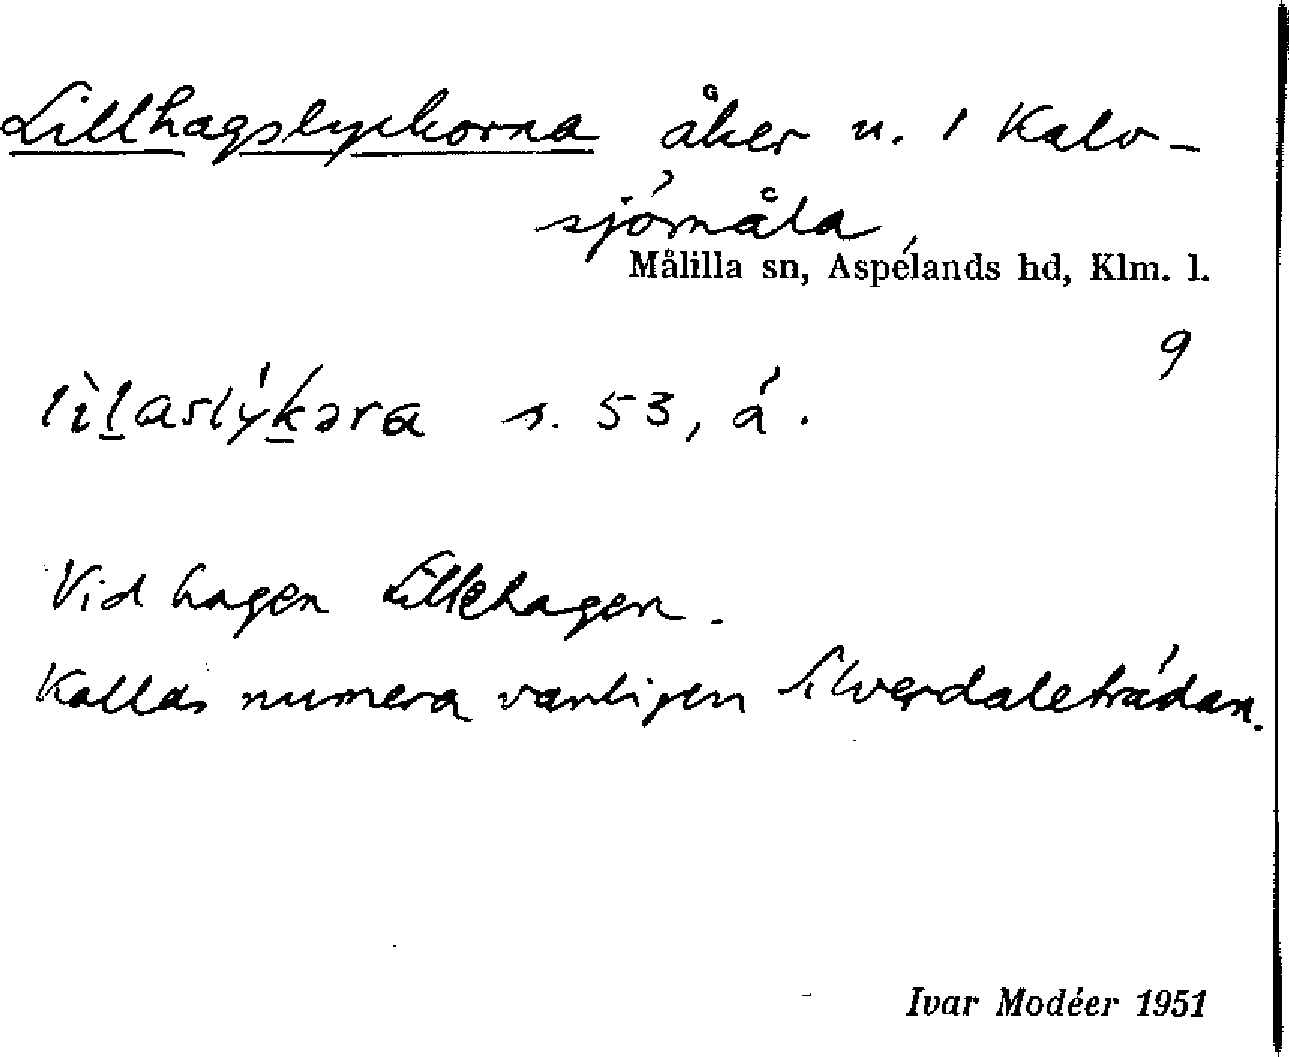 Lillhagslyckorna åker u. 1 Kalv-
sjömåla
Målilla sn, Aspelands hd, Klm. l.
9
lìḻaslýḵəra s. 53, á.
Vid hagen Lillehagen.
Kallas numera vanligen Silverdaleträdan.
Ivar Modéer 1951